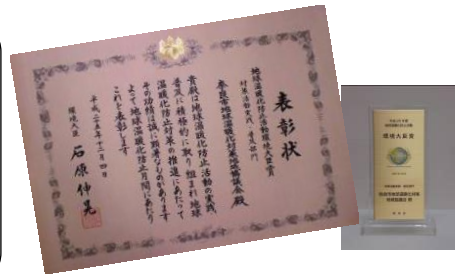 表彰状
地球温暖化防止活動環境大臣賞
対策活動実践・普及部門
奈良市地球温暖化対策地域協議会殿
貴殿は地球温暖化防止活動の実践
普及に積極的に取り組まれ地球
温暖化防止対策の推進にあたって
その功績は誠に顕著なものがあります
よって地球温暖化防止月間にあたり
これを表彰します
平成二十五年十二月四日
環境大臣 石原伸晃
環境大臣賞